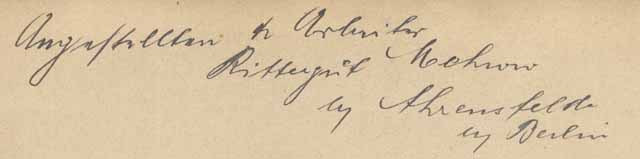 Angestellten & Arbeiter
Rittergut Mehrow
by Ahrensfelde
by Berlin